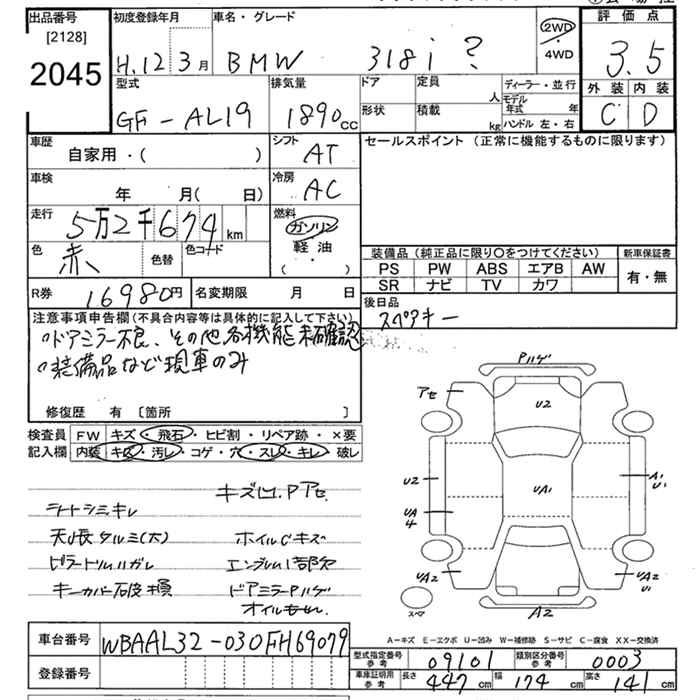 出品番号
[2128]
2045
初度登録年月
H.12 3月
車名・グレード
BMW 318i ?
2WD
4WD
評価点
3.5
外装 内装
C D
型式
GF-AL19
排気量
1890cc
ドア
形状
定員
人
積載
kg
ディーラー・並行
モデル年式 年
ハンドル 左・右
車歴
自家用・( )
シフト
AT
セールスポイント (正常に機能するものに限ります)
車検
年 月( 日)
冷房
AC
走行
5万2千674km
燃料
ガソリン
軽油
( )
色
赤
色替
色コード
装備品 (純正品に限り〇をつけてください)
PS PW ABS エアB AW
SR ナビ TV カワ
新車保証書
有・無
R券
16980円
名変期限 月 日
後日品
スペアキー
注意事項申告欄 (不具合内容等は具体的に記入して下さい)
ドアミラー不良、その他各機能未確認
装備品など現車のみ
修復歴 有 [箇所 ]
検査員
記入欄
FW キズ・飛石・ヒビ割・リペア跡・×要
内装 キズ・汚レ・コゲ・穴・スレ・キレ・破レ
キズ凹.Pアセ
シートシミキレ
天張タルミ(大)
ホイルCキズ
ピラートリムハガレ
エンブレム1部欠
キーカバー破損
ドアミラーPハゲ
オイルもれ
Pハゲ
アセ
U2
UA1
U2
UA
4
A1
U1
UA2
UA2
U1
スペア
A2
A-キズ E-エクボ U-凹み W-補修跡 S-サビ C-腐食 XX-交換済
車台番号
WBAAL32-030FH69079
登録番号
型式指定番号
参考
09101
類別区分番号
参考
0003
車庫証明用
参考
長さ 447cm 幅 174cm 高さ 141cm